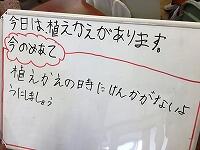 今日は植えかえがあります。
今のめあて
植えかえの時にけんかがないよ
うにしましょう